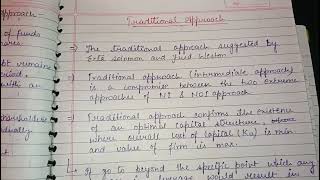 pproach -
of funds
ares.
bt remains
eriod,
with an
shareholders
dually
Traditional Approach
⇒ The traditional approach suggested by
Ezra Solomon and Fred Weston.
⇒ Traditional approach (intermediate approach)
is a compromise between the two extreme
approaches of NI & NOI approach
⇒ Traditional approach confirms the existence
of an optimal capital structure, where
where overall cost of capital (Ko) is min
and value of firm is max.
If go to beyond the specific point which any
leverage would result in